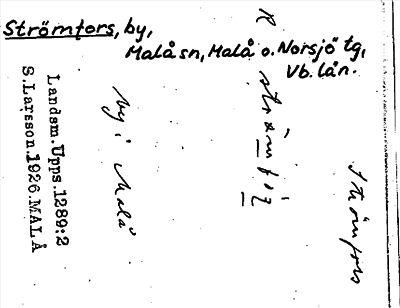 Strömfors, by,
Malå sn, Malå o. Norsjö tg,
Vb. län.
R
Strömfors
by i Malå
Landsm. Upps. 1289:2
S. Larsson. 1926. MALÅ